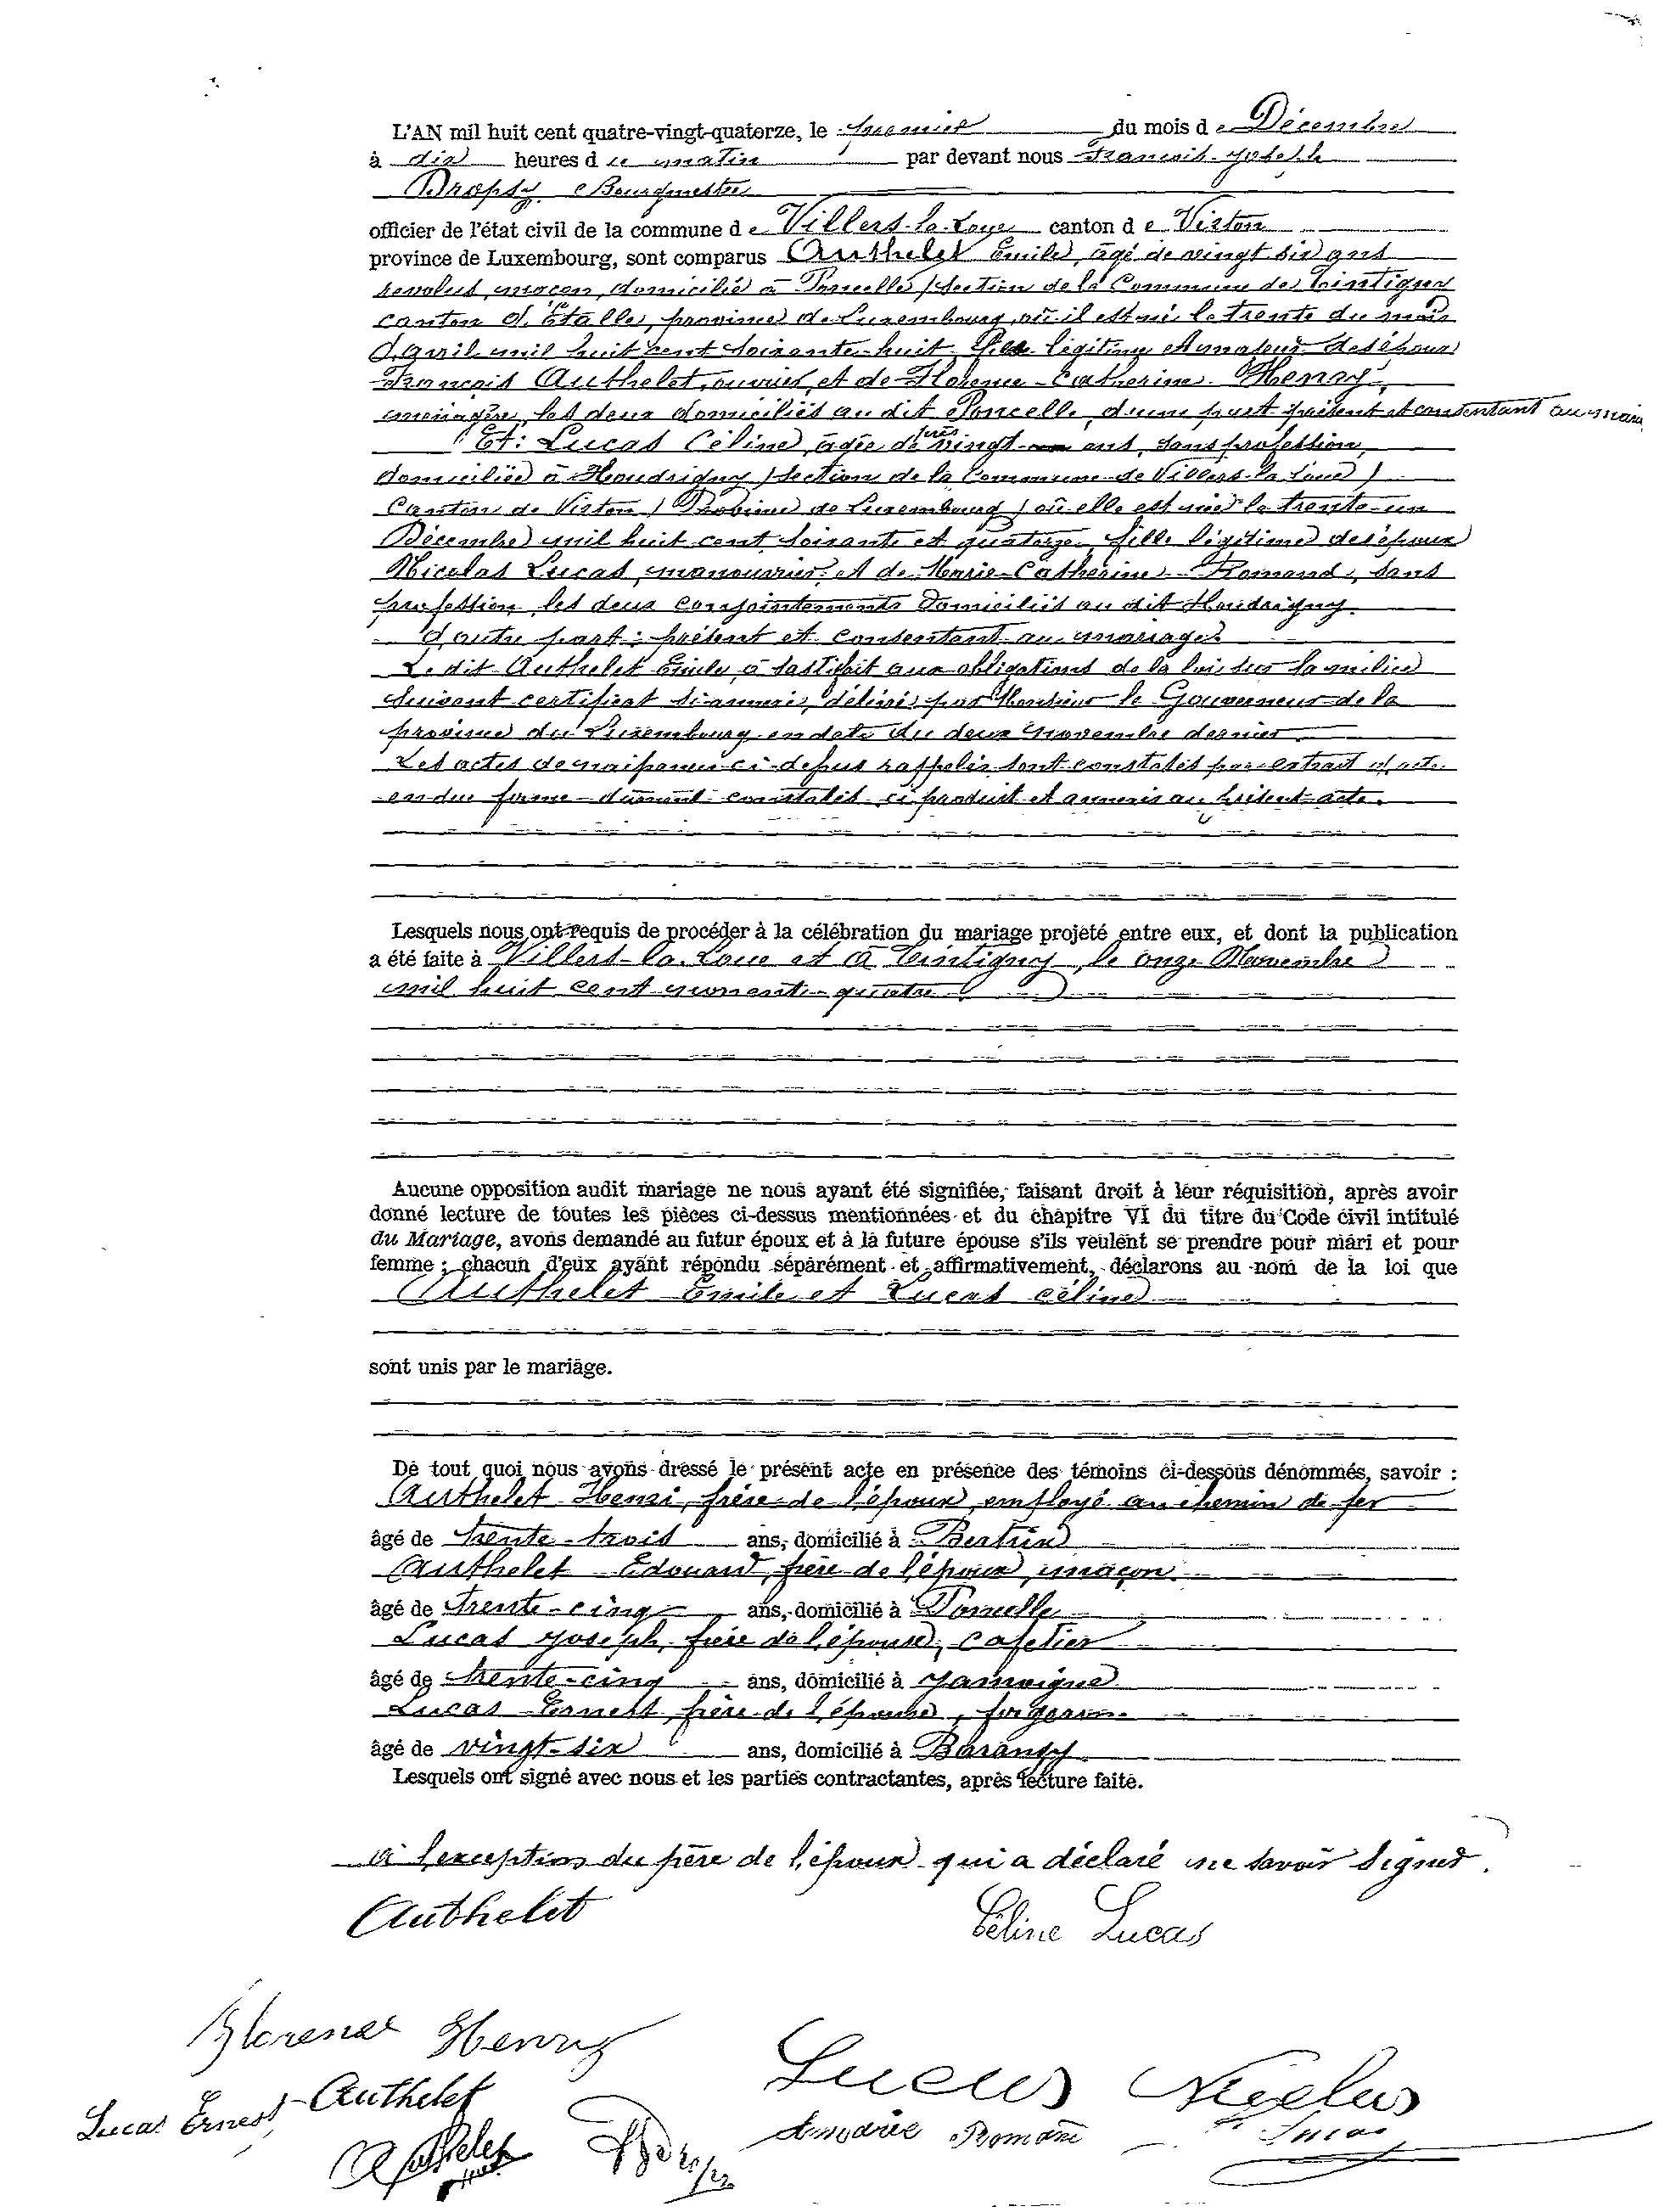 L'AN mil huit cent quatre-vingt-quatorze, le premier du mois de Décembre
à dix heures du matin par devant nous François-Joseph
Dropsy Bourgmestre
officier de l'état civil de la commune de Villers-la-Loue canton de Virton
province de Luxembourg, sont comparus Authelet Emile, âgé de vingt six ans
revolus, maçon, domicilié à Poncelle, (section de la Commune de Tintigny
canton d'Étalle, province de Luxembourg, où il est né le trente du mois
d'avril mil huit cent soixante-huit, fils légitime et majeur des époux
François Authelet, ouvrier, et de Florence-Catherine Henry,
ménagère, les deux domiciliés au dit Poncelle, d'une part présent et consentant au mari
Et: Lucas Céline, âgée de près vingt ans, sans profession,
domiciliée à Houdrigny (section de la Commune de Villers-la-Loue)
Canton de Virton (Province de Luxembourg) où elle est née le trente-un
Décembre mil huit cent soixante et quatorze, fille légitime des époux
Nicolas Lucas, manouvrier et de Marie-Catherine Romand, sans
profession, les deux conjointements domiciliés au dit Houdrigny
d'autre part: présent et consentant au mariage.
Le dit Authelet Emile, à sastifait aux obligations de la loi sur la milice
suivant certificat ci-annexé, délivré par Monsieur le Gouverneur de la
province du Luxembourg en date du deux Novembre dernier
Les actes de naissance ci-dessus rappelés sont constatés par extrait d'acte
en due forme dûment constatés, ci produit et annexés au présent acte.
Lesquels nous ont requis de procéder à la célébration du mariage projeté entre eux, et dont la publication
a été faite à Villers-la-Loue et à Tintigny, le onze Novembre
mil huit cent nonante-quatre
Aucune opposition audit mariage ne nous ayant été signifiée, faisant droit à leur réquisition, après avoir
donné lecture de toutes les pièces ci-dessus mentionnées et du chapitre VI du titre du Code civil intitulé
du Mariage, avons demandé au futur époux et à la future épouse s'ils veulent se prendre pour mari et pour
femme ; chacun d'eux ayant répondu séparément et affirmativement, déclarons au nom de la loi que
Authelet Emile et Lucas Céline
sont unis par le mariage.
De tout quoi nous avons dressé le présent acte en présence des témoins ci-dessous dénommés, savoir :
Authelet Henri, frère de l'époux, employé au chemin de fer
âgé de trente-trois ans, domicilié à Bertrix
Authelet Edouard, frère de l'époux, maçon
âgé de trente-cinq ans, domicilié à Poncelle
Lucas Joseph, frère de l'épouse, cafetier
âgé de trente-cinq ans, domicilié à Jamoigne
Lucas Ernest, frère de l'épouse, forgeron
âgé de vingt-six ans, domicilié à Baranzy
Lesquels ont signé avec nous et les parties contractantes, après lecture faite.
à l'exception du père de l'époux qui a déclaré ne savoir signer.
Authelet Céline Lucas
Florence Henry
Lucas Nicolas
Lucas Ernest Authelet
Marie Romand Lucas
Authelet Dropsy